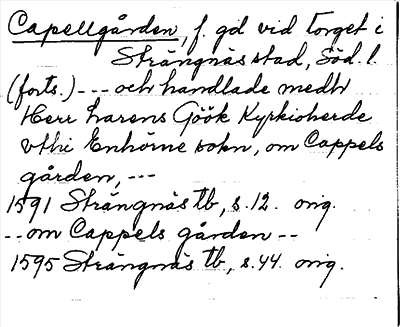 Capellgården, f. gd vid torget i
Strängnäs stad, Söd. l.
(forts.) --- och handlade medh
Herr Larens Göök Kyrkioherde
vthi Enhörne sokn, om Cappels
gården, ---
1591 Strängnäs tb, s. 12. orig.
-- om Cappels gården --
1595 Strängnäs tb, s. 44. orig.